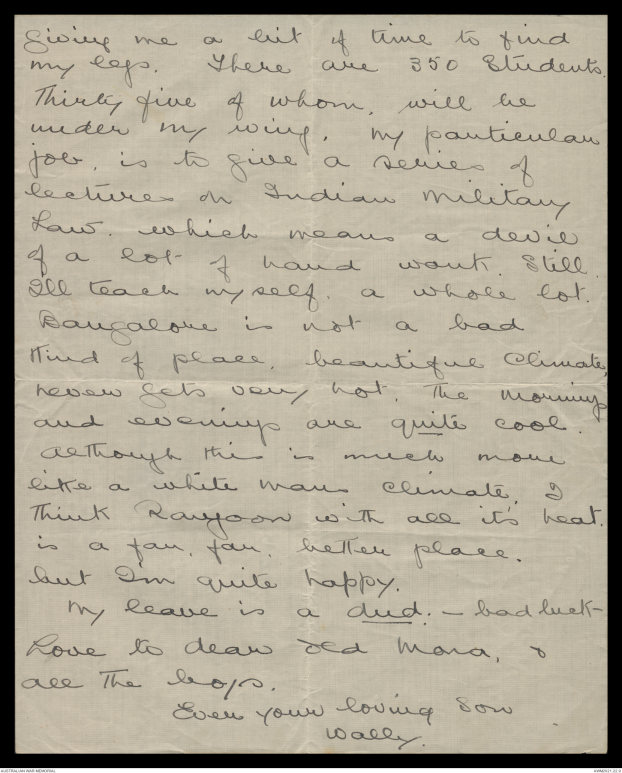 giving me a bit of time to find
my legs. There are 350 Students.
Thirty five of whom, will be
under my wing. My particular
job, is to give a series of
lectures on Indian Military
Law. which means a devil
of a lot of hard work. Still.
I'll teach myself. a whole lot.
Bangalore is not a bad
kind of place, beautiful Climate,
never gets very hot. The mornings
and evenings are quite cool.
Although this is much more
like a white mans climate, I
think Rangoon with all it's heat.
is a far, far, better place.
but I'm quite happy.
My leave is a dud. - bad luck -
Love to dear old Mona, &
all The boys.
Ever your loving Son
Wally.
AUSTRALIAN WAR MEMORIAL